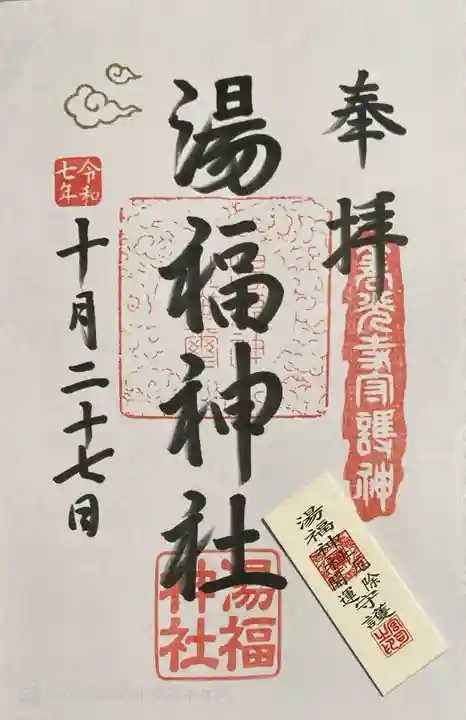 奉拝
善光寺守護神
湯福神社
湯福
神社
令和
七年
十月二十七日
湯福神社
開運
厄除守護